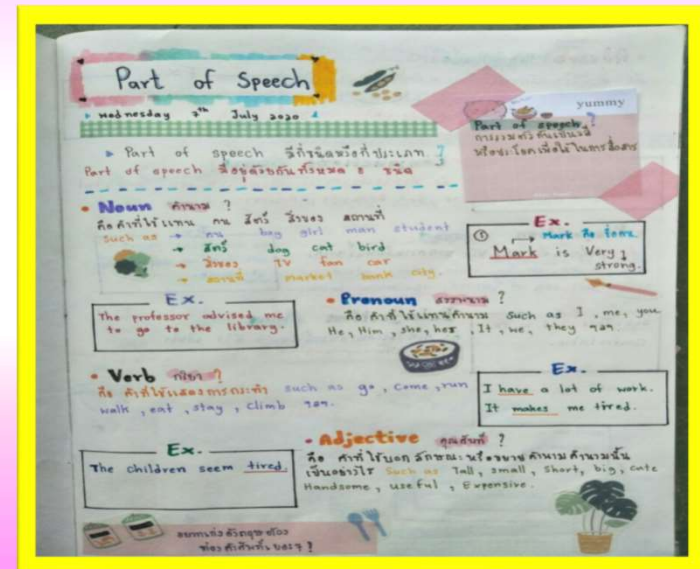 Part of Speech
Wednesday 7th July 2020
yummy
Part of speech ?
การรวมตัวกันเป็นวลี
หรือประโยคเพื่อใช้ในการสื่อสาร
Part of speech มีกี่ชนิดหรือกี่ประเภท ?
Part of speech มีอยู่ด้วยกันทั้งหมด 8 ชนิด
• Noun คำนาม ?
คือ คำที่ใช้แทน คน สัตว์ สิ่งของ สถานที่
such as → คน boy girl man student
→ สัตว์ dog cat bird
→ สิ่งของ TV fan car
→ สถานที่ market bank city.
Ex.
① Mark คือ ชื่อคน
Mark is Very
strong.
Ex.
The professor advised me
to go to the library.
• Pronoun สรรพนาม ?
คือ คำที่ใช้แทนคำนาม such as I, me, you
He, Him, she, her, It, we, they ฯลฯ.
• Verb กริยา ?
คือ คำที่ใช้แสดงการกระทำ such as go, come, run
walk, eat, stay, climb ฯลฯ.
Ex.
I have a lot of work.
It makes me tired.
Ex.
The children seem tired.
• Adjective คุณศัพท์ ?
คือ คำที่ใช้บอกลักษณะ หรือขยายคำนาม คำนามนั้น
เป็นอย่างไร Such as Tall, small, Short, big, cute
Handsome, useful, Expensive.
อยากเก่งอังกฤษต้อง
ท่องคำศัพท์เยอะๆ ?